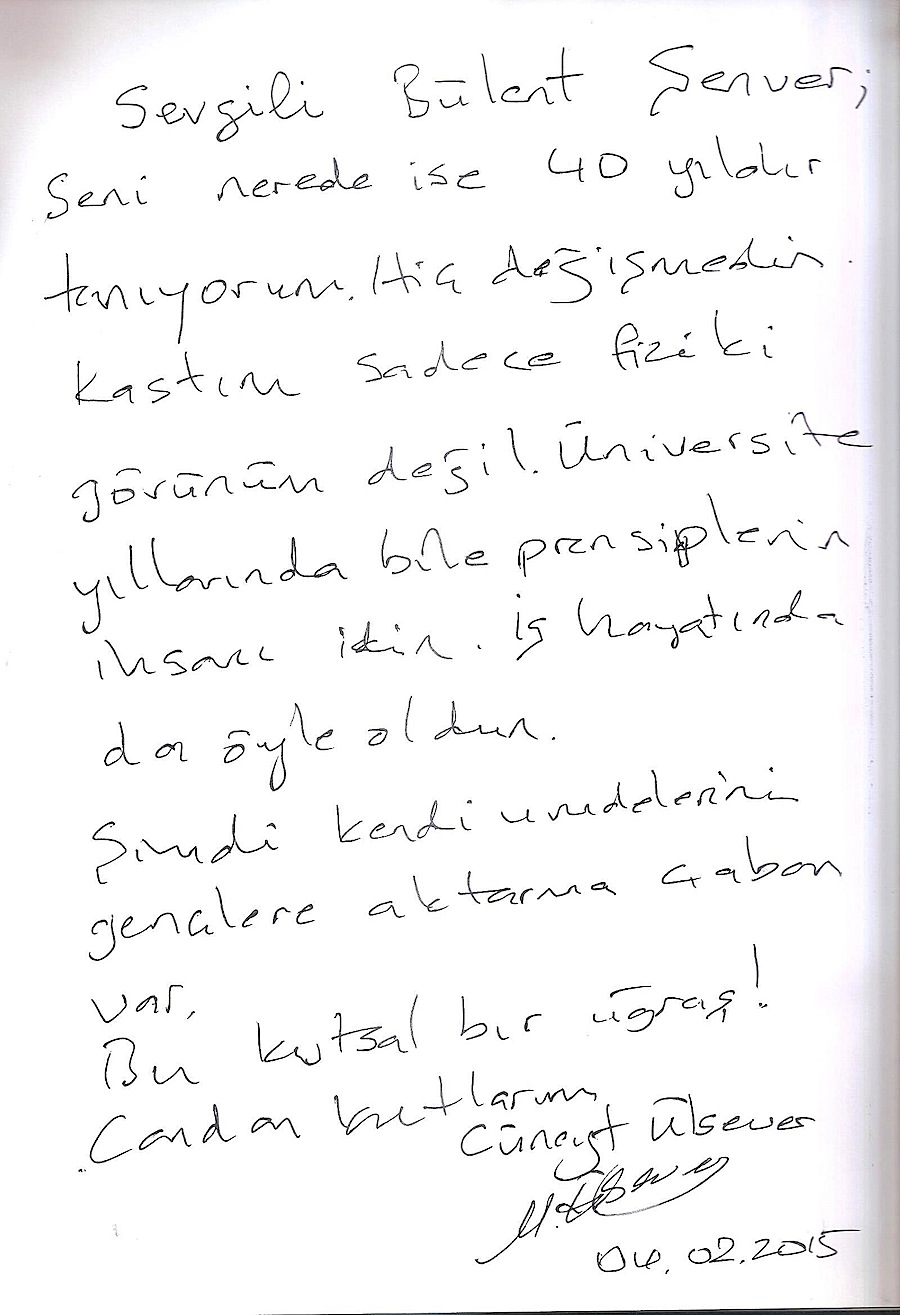 Sevgili Bülent Şenver;
Seni nerede ise 40 yıldır
tanıyorum. Hiç değişmedin.
kastım sadece fiziki
görünüm değil. Üniversite
yıllarında bile prensiplerin
insanı idin. İş hayatında
da öyle oldun.
Şimdi kendi umdelerini
gençlere aktarma çaban
var.
Bu kutsal bir uğraş!
Candan kutlarım
Cüneyt Ülsever
04.02.2015